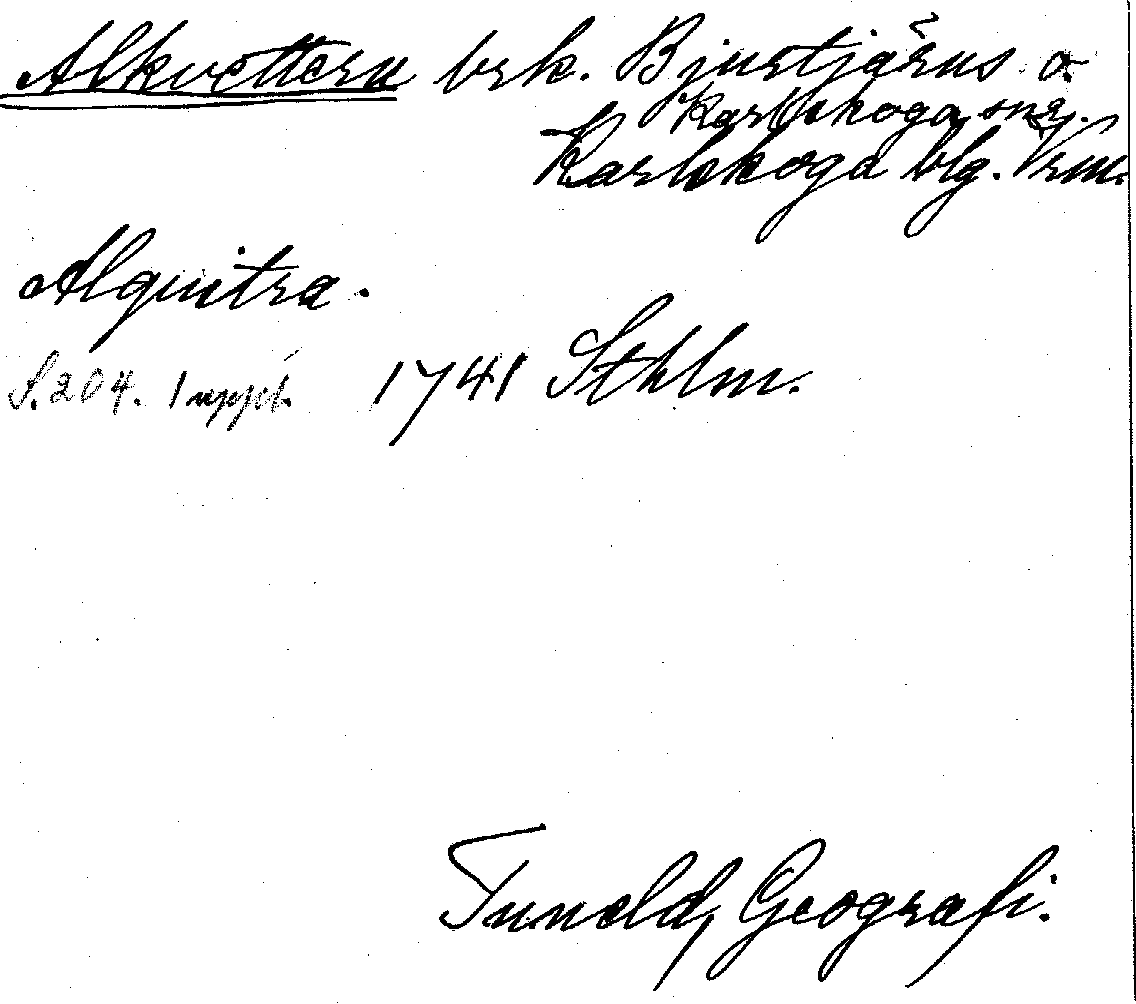 Alkvettern brk. Bjurtjärns o.
Karlskoga snr.
Karlskoga blg. Vrm.
Alquitra.
S. 204. 1 uppl. 1741 Sthlm.
Tuneld, Geografi.